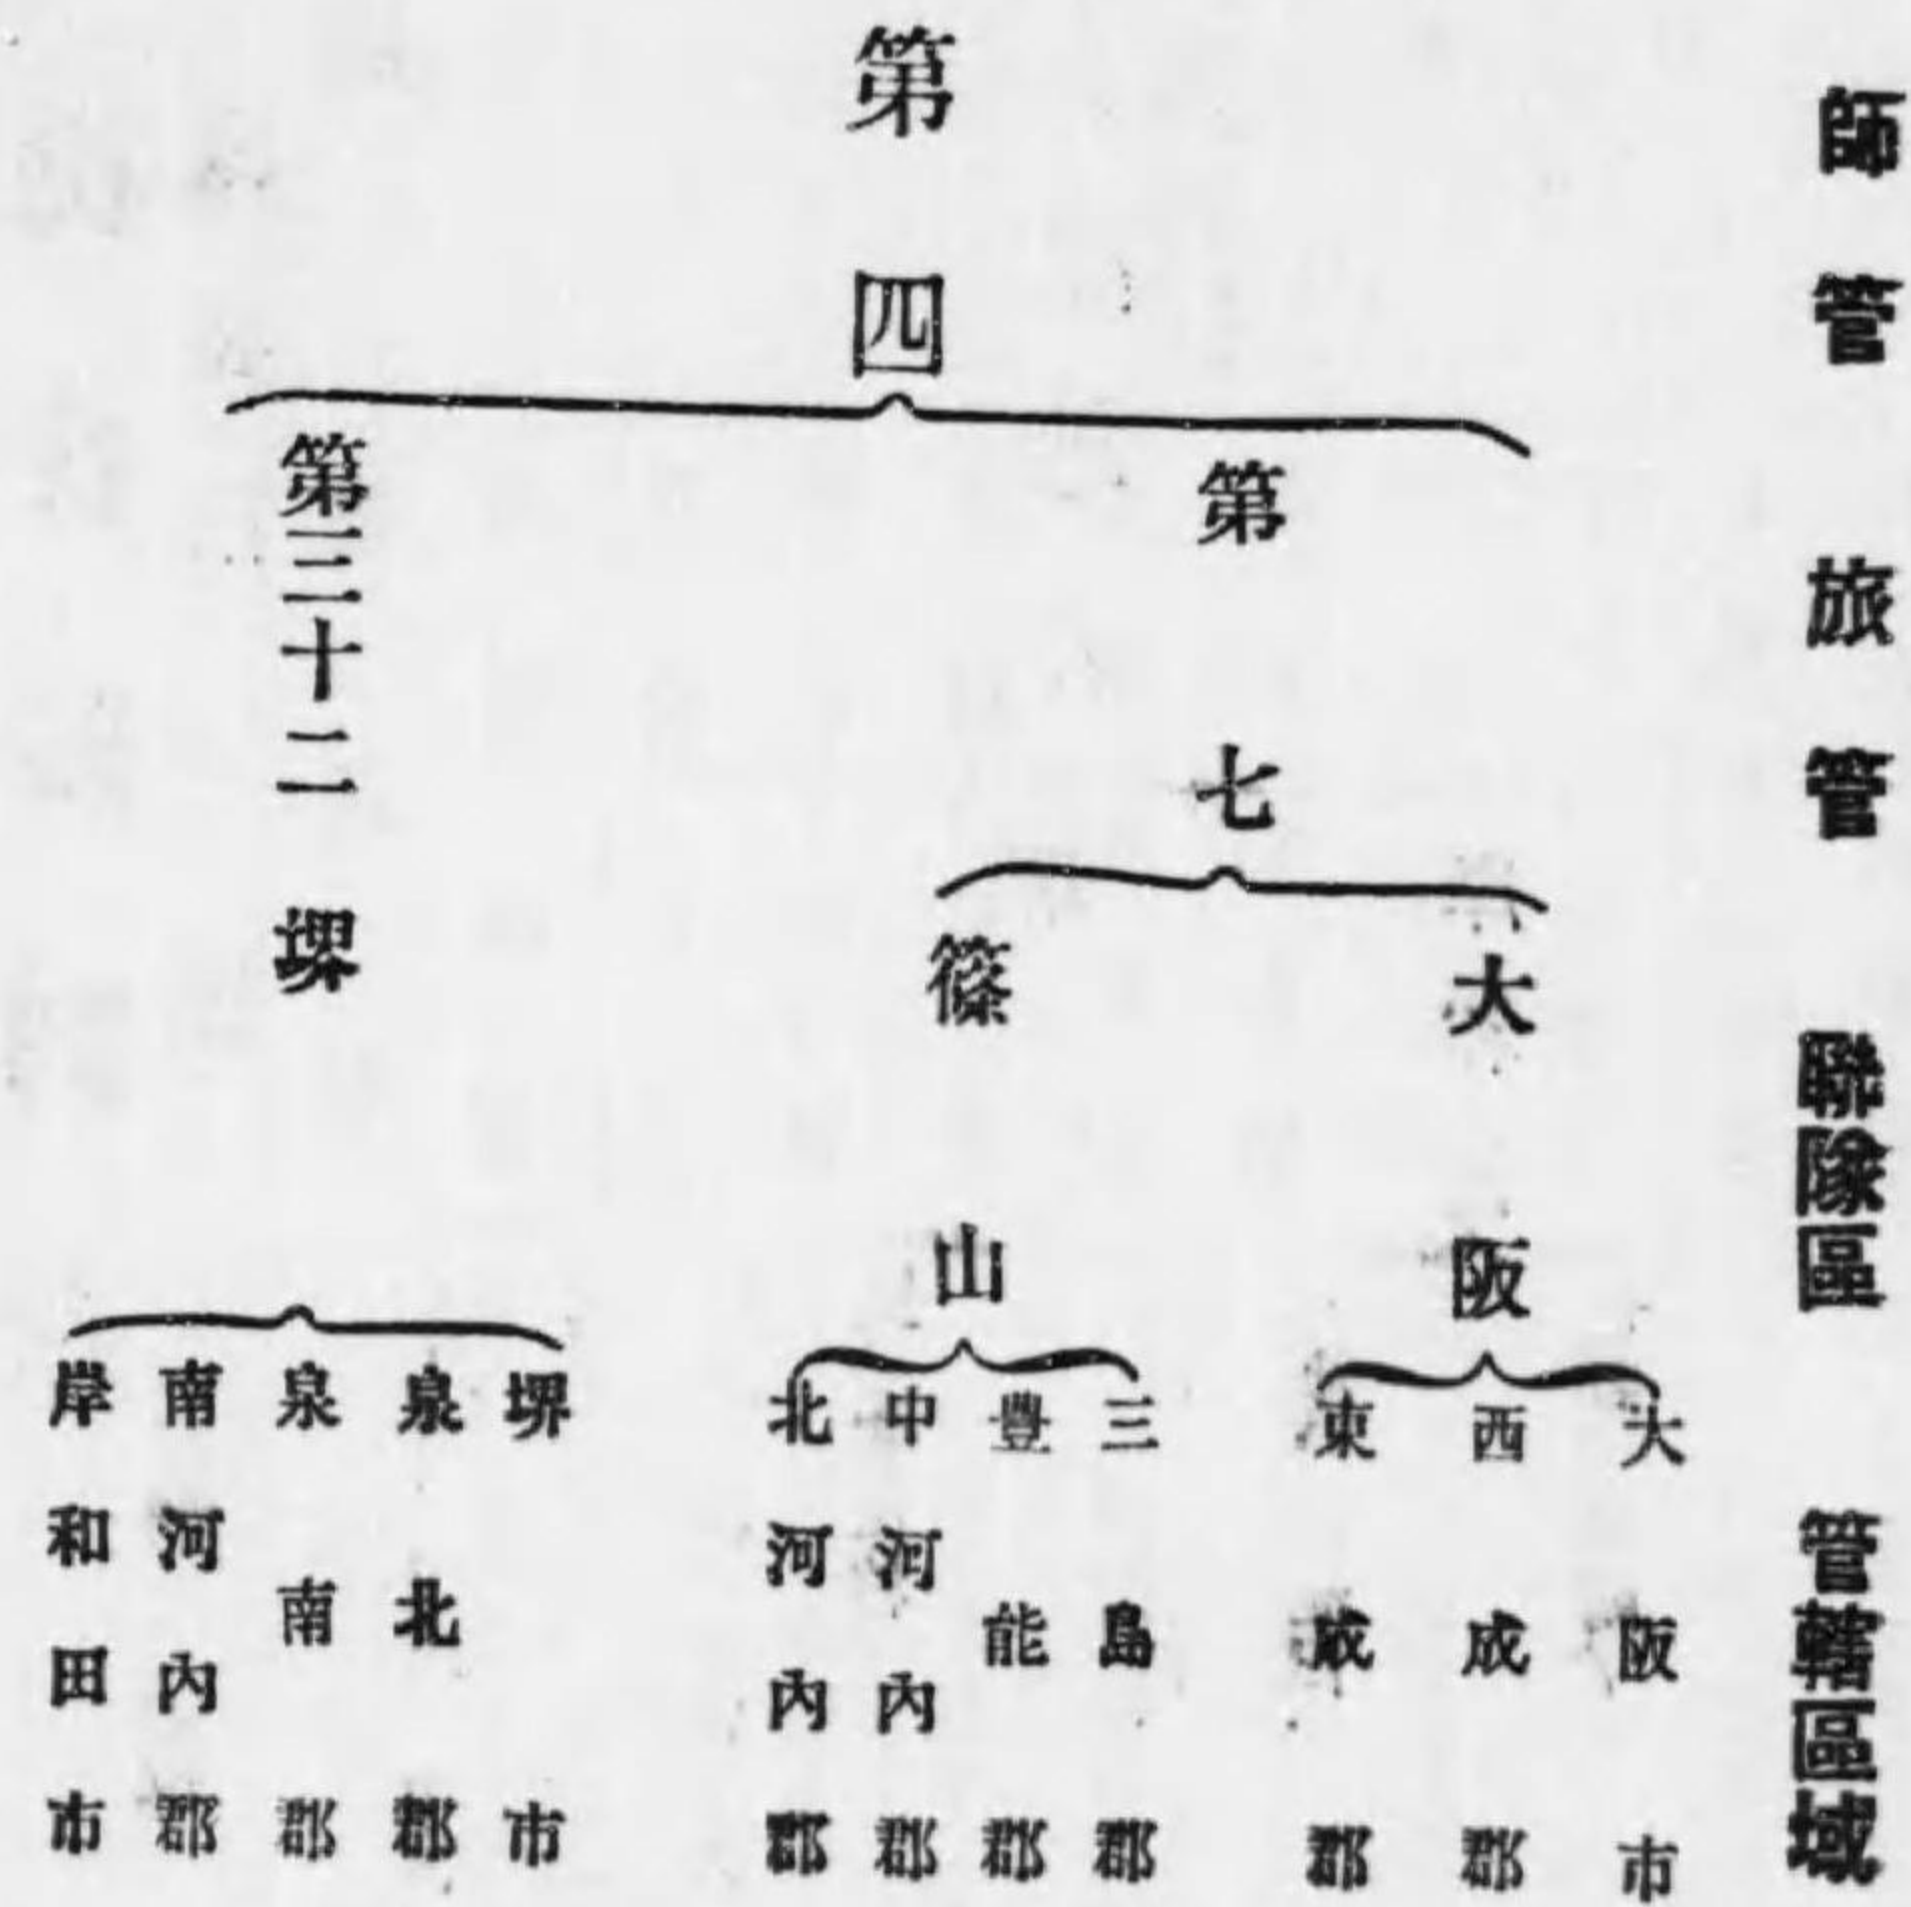 師管 旅管 聯隊區 管轄區域
第四
第七
大阪
大阪市
西成郡
東成郡
篠山
三島郡
豐能郡
中河內郡
北河內郡
第三十二
堺
堺市
泉北郡
泉南郡
南河內郡
岸和田市